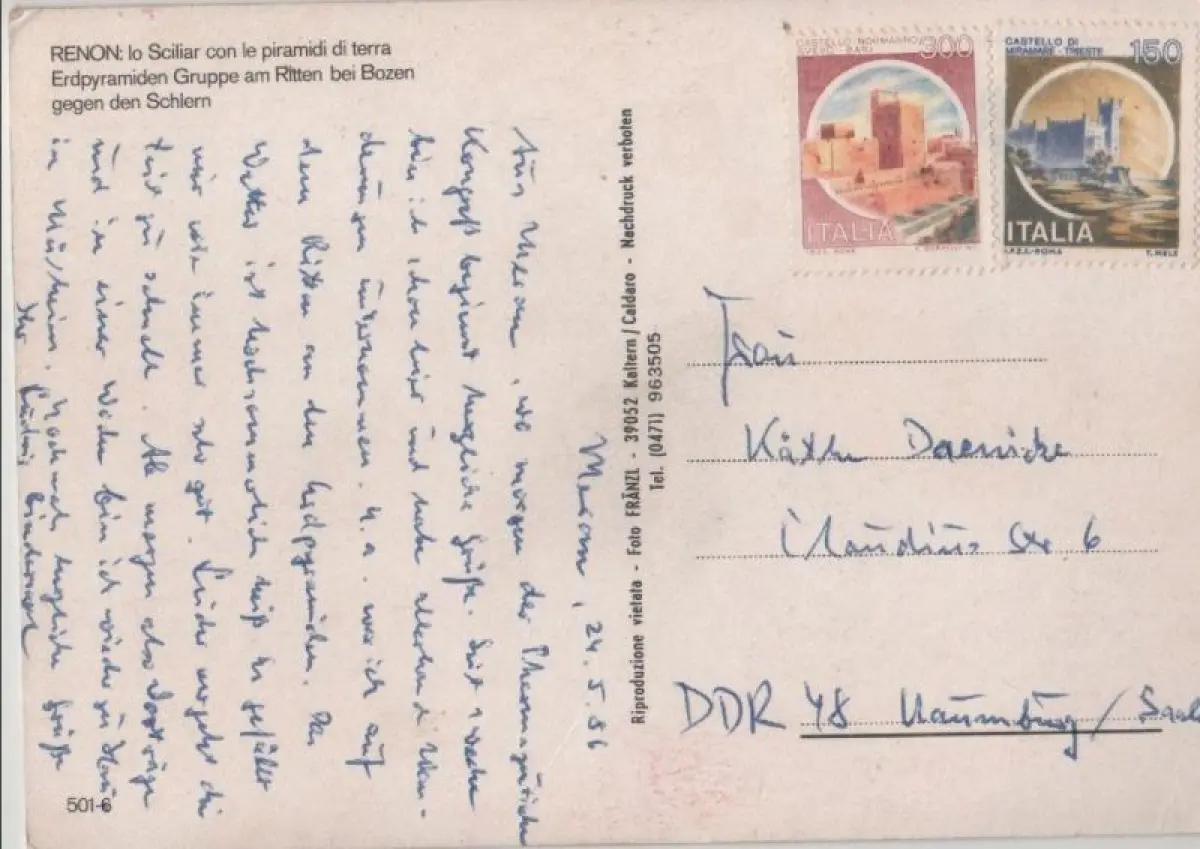 RENON: lo Sciliar con le piramidi di terra
Erdpyramiden Gruppe am Ritten bei Bozen
gegen den Schlern
CASTELLO NORMANNO
SVEVO - BARI
300
ITALIA
I.P.Z.S. ROMA
CASTELLO DI
MIRAMARE - TRIESTE
150
ITALIA
I.P.Z.S. - ROMA
T. MELE
Meran, 24.5.86
Aus Meran, wo morgen der Pharmazeutische
Kongreß beginnt herzliche Grüße. Seit 1 Woche
bin ich schon hier und habe allerhand Wan-
derungen unternommen. U.a. war ich auf
dem Ritten an den Erdpyramiden. Das
Wetter ist hochsommerlich heiß. Es gefällt
mir wie immer sehr gut. Leider vergeht die
Zeit zu schnell. Ab morgen also Vorträge
und in einer Woche bin ich wieder zu Haus
in Mülheim. Nochmals herzliche Grüße
Ihr
Riproduzione vietata - Foto FRÄNZL - 39052 Kaltern / Caldaro - Nachdruck verboten
Tel. (0471) 963505
Frau
Käthe Daenicke
Claudius Str 6
DDR 48 Naumburg / Saale
501-6